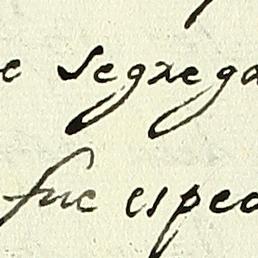 e segrega
fue espec